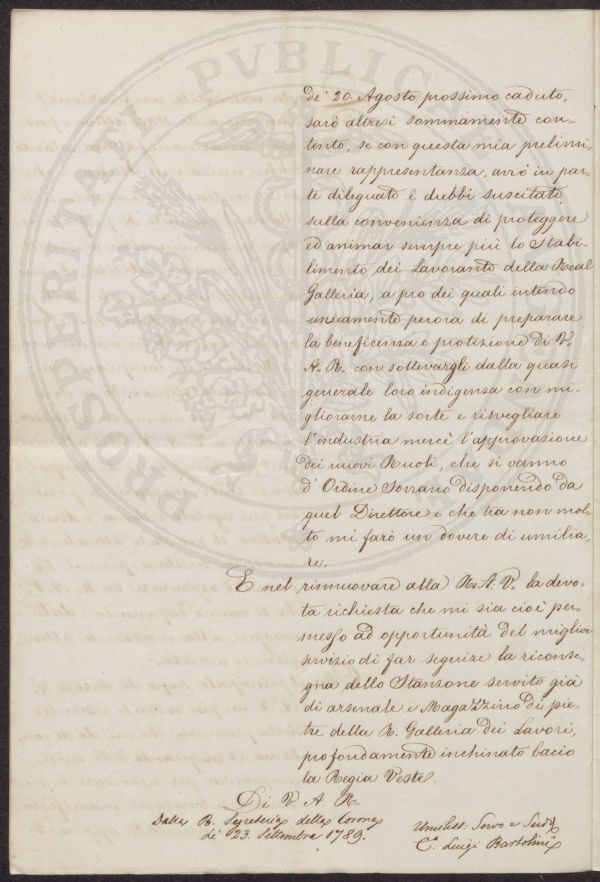 PROSPERITATI PVBLIC
de' 20. Agosto prossimo caduto,
sarò altresì sommamente con-
tento, se con questa mia prelimi-
nare rappresentanza, avrò in par-
te dileguato i dubbi suscitati
sulla convenienza di proteggere
ed animar sempre più lo Stabi-
limento dei Lavoranti della Real
Galleria, a pro dei quali intendo
unicamente perora di preparare
la beneficenza e protezione di V.
A. R. con sollevargli dalla quasi
generale loro indigenza con mi-
gliorarne la sorte e risvegliare
l'industria mercè l'approvazione
dei nuovi Ruoli, che si vanno
d'Ordine Sovrano disponendo da
quel Direttore e che tra non mol-
to mi farò un dovere di umilia-
re.
E nel rinnuovare alla R. A. V. la devo-
ta richiesta che mi sia cioè per-
messo ad opportunità del miglior
servizio di far seguire la riconse-
gna dello Stanzone servito già
di arsenale e Magazzino di pie-
tre della R. Galleria dei Lavori,
profondamente inchinato bacio
la Regia Veste.
Di V. A. R.
Dalla R. Segreteria della Corona
di 23. Settembre 1789.
Umiliss: Servo e Sudd
Luigi Bartolini